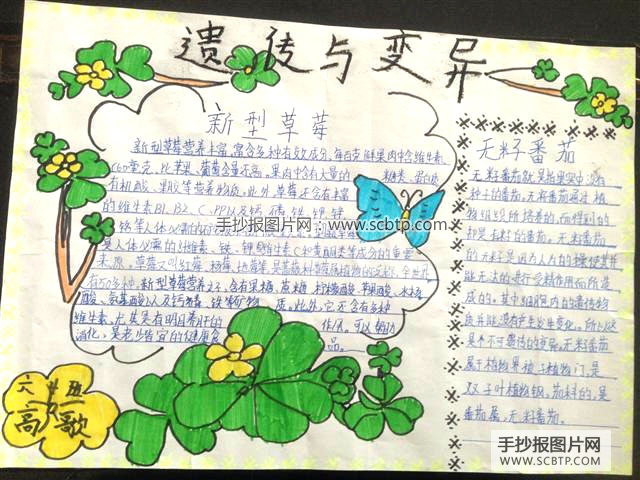 遗传与变异
新型草莓
新型草莓营养丰富,富含多种有效成分,每百克鲜果肉中含维生素
C60毫克,比苹果、葡萄含量还高。果肉中含有大量的 糖类、蛋白质
有机酸、果胶等营养物质。此外,草莓还含有丰富
的维生素B1、B2、C、PP以及钙、磷、铁、钾、锌
铬等人体必需的
是人体必需的纤维素、铁、钾、维生素C和黄酮类等成分的重要
来源。草莓又叫红莓、杨莓、地莓等,是蔷薇科草莓属植物的
有50多种。新型草莓营养 含有果糖、蔗糖、柠檬酸、苹果酸、水杨
酸、氨基酸以及钙 磷、铁等矿物 质。此外,它还含有多种
维生素,尤其是 有明目养肝的 作用,可以帮助
消化,是老少皆宜的健康食 品。
无籽番茄
无籽番茄就是指果实中没有
种子的番茄。无籽番茄通过植
物组织所培养的,而得到的
却是无籽的番茄。无籽番茄
的无籽是因为人为的操使其并
能无法的进行受精作用而所造
成的。其中细胞内的遗传物
质并没有产生发生变化,所以这
是个不可遗传的变异。无籽番茄
属于植物界被子植物门,是
双子叶植物钢,茄科的,是
番茄属,无籽番茄。
六 班
高歌
手抄报图片网:www.scbtp.com
手抄报图片网
WWW.SCBTP.COM